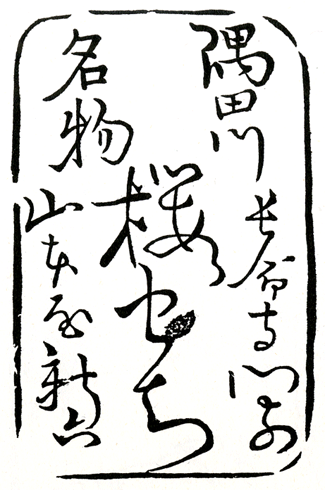 隅田川長命寺門前
桜もち
名物山本屋新六